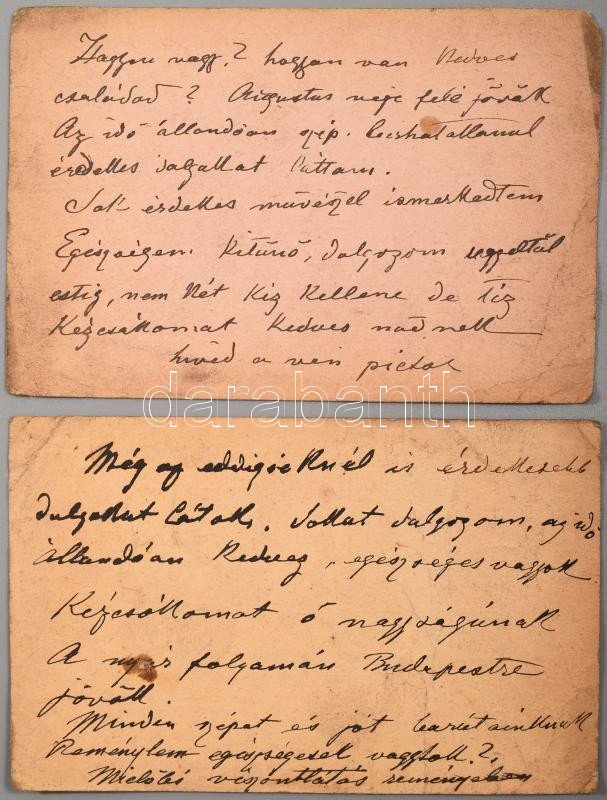 Hogyan vagy? hogyan van Kedves
családod? Augustus vége felé jövök
Az idő állandóan szép.
érdekes dolgokat láttam.
Sok érdekes művészel ismerkedtem
Egészségem Kitünő, dolgozom reggeltől
estig, nem Két Kéz Kellene de Tíz
Kézcsókomat Kedves nődnek
hived a vén pictor
darabanth
Még az eddigieKnél is érdekesebb
dolgokat látok. Sokat dolgozom, az idő
állandóan Kedvez, egészséges vagyok
Kézcsókomat ő nagyságának
A nyár folyamán Budapestre
jövök.
Minden szépet és jót barátainknak
Reménylem egészségesek vagytok?
Mielőbbi viszontlátás reményében